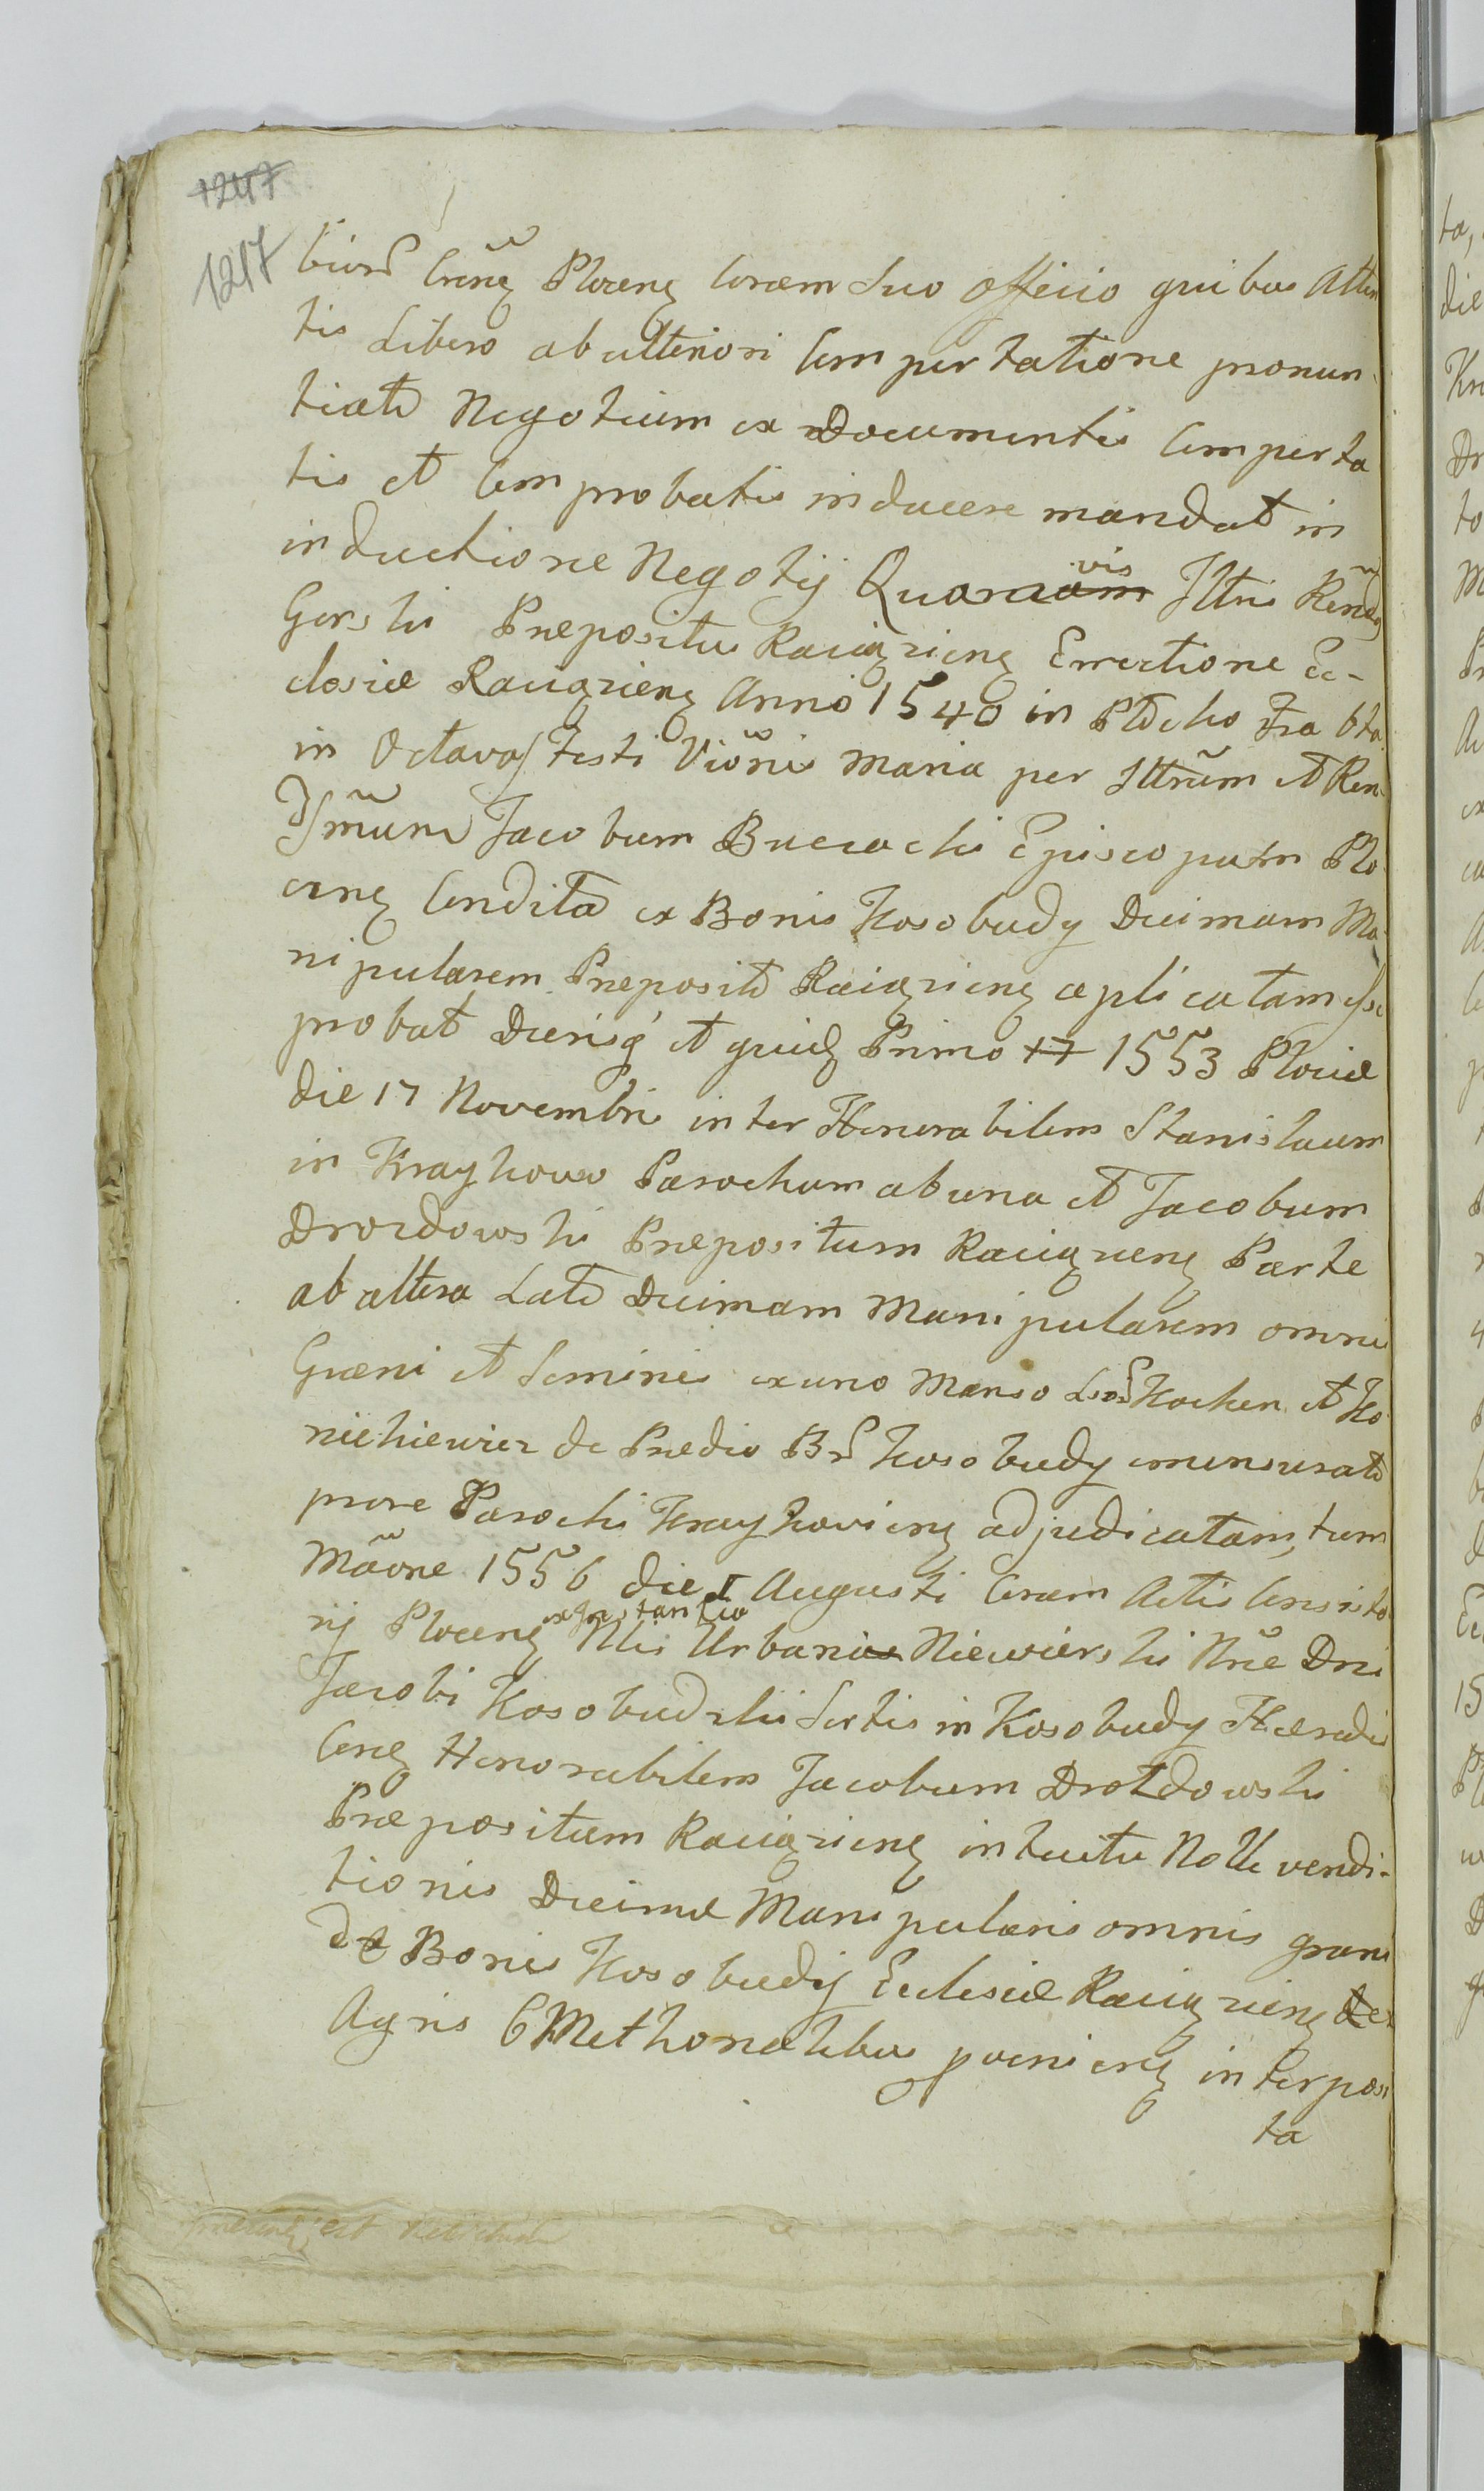 1247
1217
Coram Suo officio quibus Atten
tis Libero ab ulteriori Comportatione pronun
tiato Negotium ex Documentis Comporta
tis et Comprobatis inducere mandat in
inductione Negotij Quamvis Illris Rendus
Gorski Præpositus Raciązieng Errectione Ec-
clesiæ Raciązieng Anno 1540 in Płocko Fra 6ta
in Octava Festi Vionis Maria per Illrum et Ren
Dssmum Jacobum Buczacki Episcopum Plo
ceng Condita ex Bonis Kosobudy Decimam Ma
nipularem Præposito Raciązieng aplicatam esse
probat Decrisq et quidq Primo 17 1553 Plociæ
die 17 Novembris inter Honorabilem Stanislaum
in Kraykowo Parochum ab una et Jacobum
Drozdowski Præpositum Raciązieng Parte
ab altera Lato Decimam Manipularem omnis
Grani et Seminis ex uno Manso Kochen et Ko
niekiewicz de Prædio Kosobudy emensurato
prove Parochi Kraykovieng adjudicatam, tum
Maone 1556 die 1 Augusti Coram Actis Consisto
rij Ploceng ex Instantia Nlis Urbani Niewierski Nne Dni
Jacobi Kosobudzki Sortis in Kosobudy Hæredis
Cong Honorabilem Jacobum Drozdowski
Præpositum Raciązieng intuitu Nolle vendi-
tionis Decimæ Manipularis omnis grani
de Bonis Kosobudy Ecclesiæ Raciązieng de
Agris CMethonalibus proenieng interposi
ta